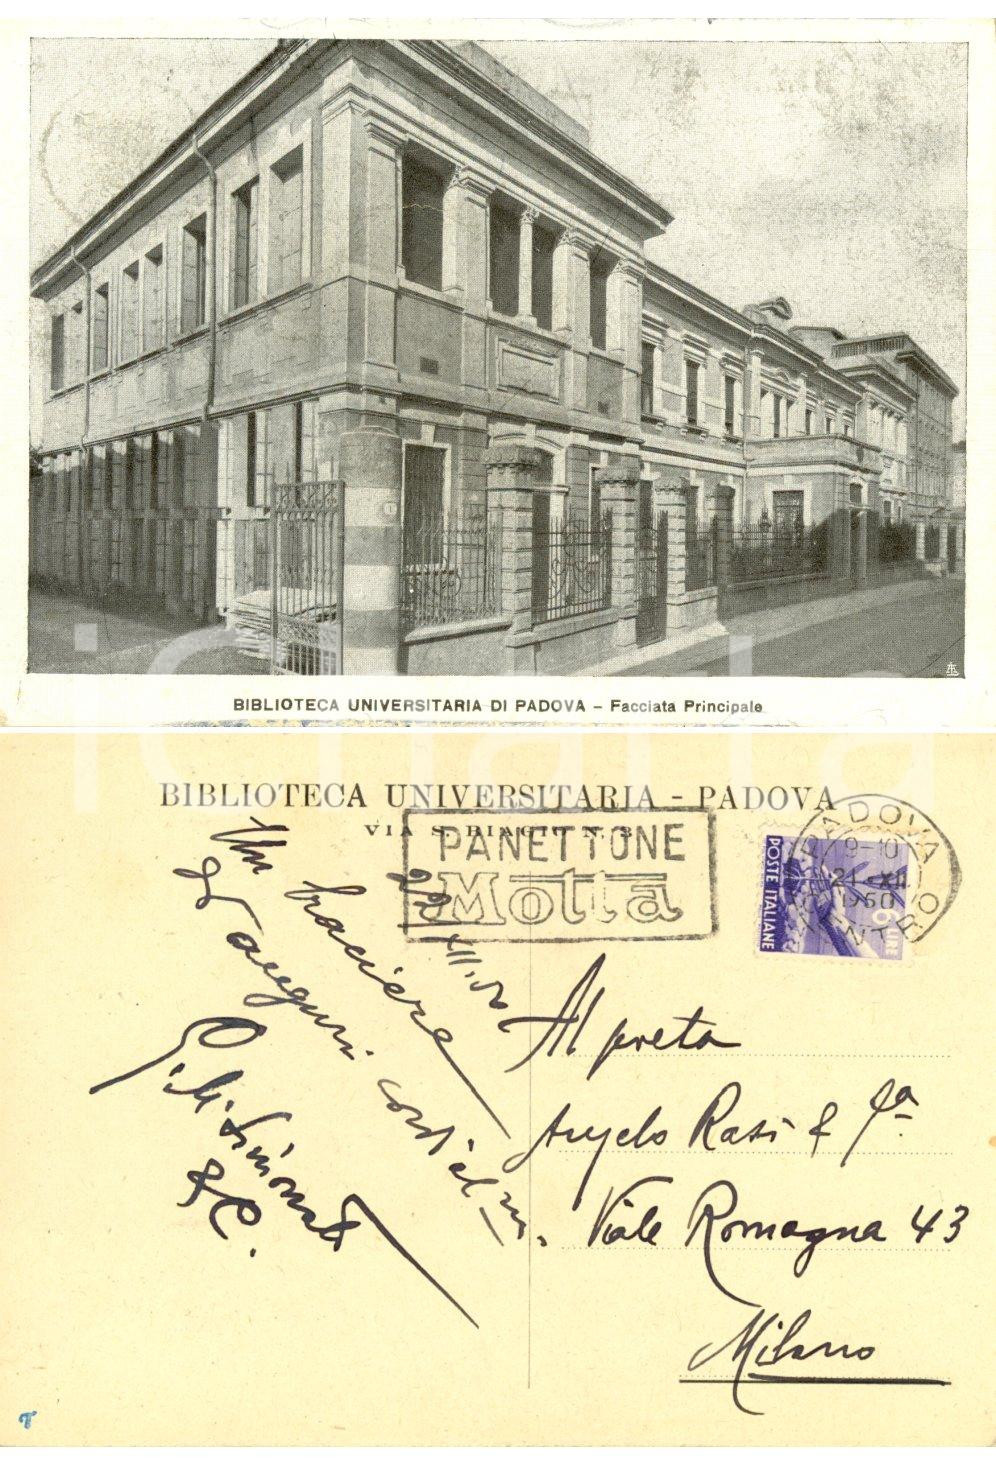 BIBLIOTECA UNIVERSITARIA DI PADOVA – Facciata Principale
BIBLIOTECA UNIVERSITARIA - PADOVA
VIA S. BIAGIO N. 3
PANETTONE
Motta
PADOVA
9-10
21 XII
1950
CENTRO
POSTE ITALIANE
6 LINE
Un
&
auguri cordialm.
&C.
Al preta
Angelo Rasi & fª
Viale Romagna 43
Milano